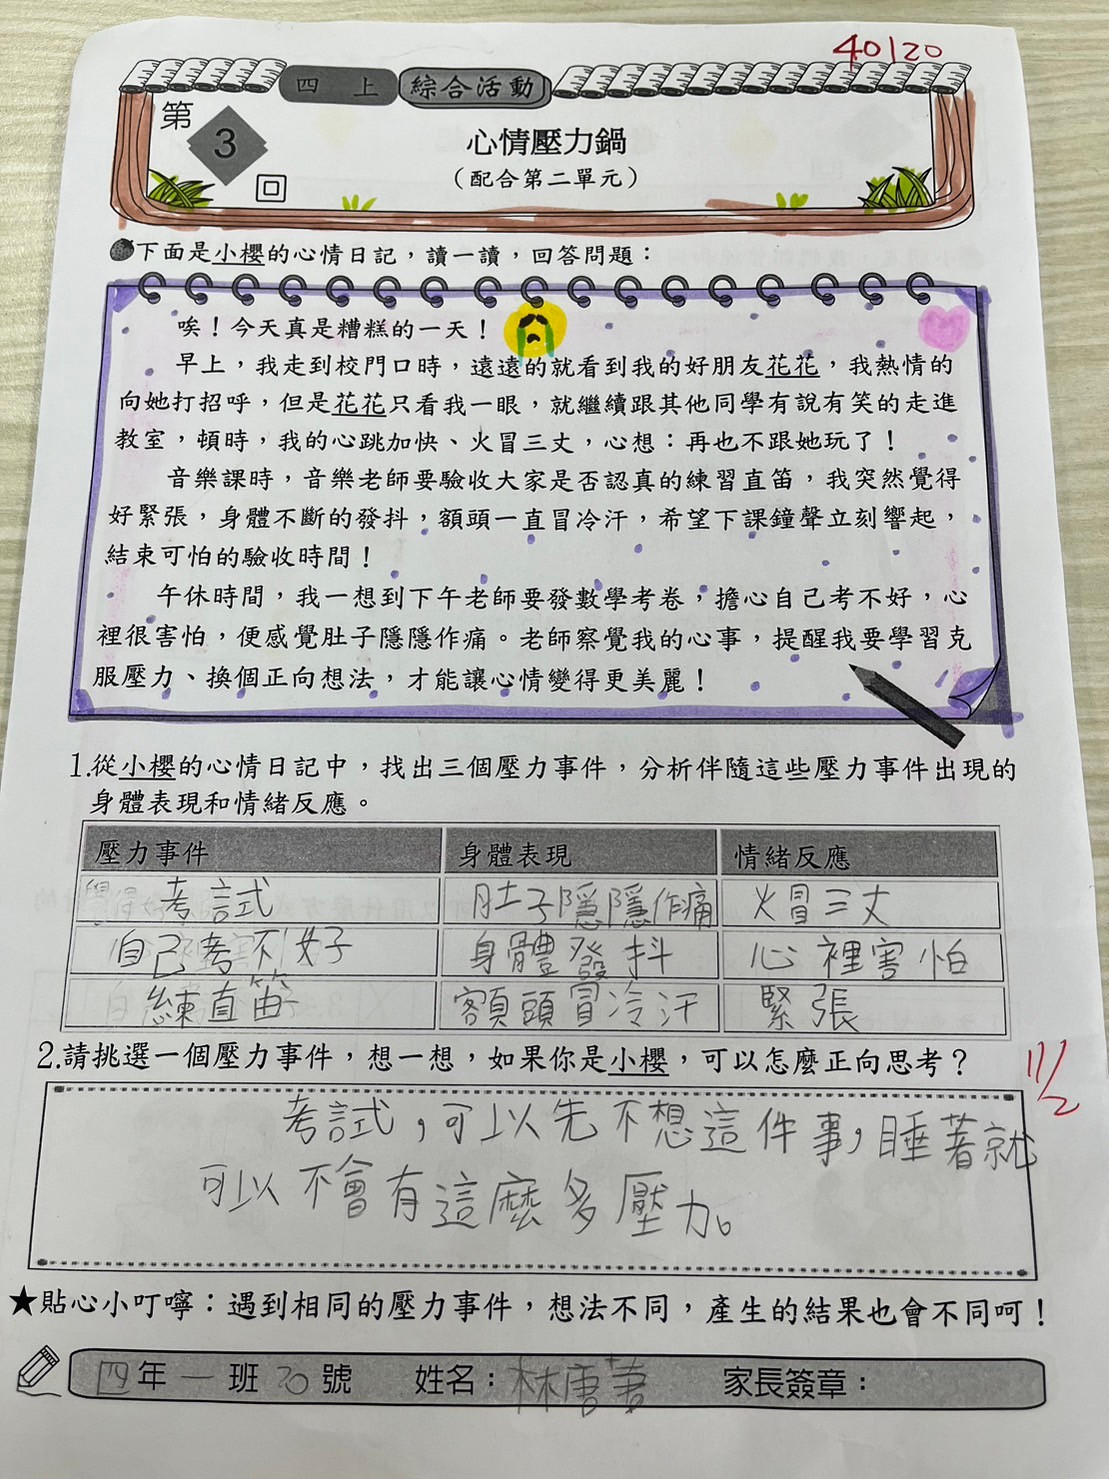 40120
四上 綜合活動
第3回
心情壓力鍋
（配合第二單元）
下面是小櫻的心情日記，讀一讀，回答問題：
唉！今天真是糟糕的一天！
早上，我走到校門口時，遠遠的就看到我的好朋友花花，我熱情的
向她打招呼，但是花花只看我一眼，就繼續跟其他同學有說有笑的走進
教室，頓時，我的心跳加快、火冒三丈，心想：再也不跟她玩了！
音樂課時，音樂老師要驗收大家是否認真的練習直笛，我突然覺得
好緊張，身體不斷的發抖，額頭一直冒冷汗，希望下課鐘聲立刻響起，
結束可怕的驗收時間！
午休時間，我一想到下午老師要發數學考卷，擔心自己考不好，心
裡很害怕，便感覺肚子隱隱作痛。老師察覺我的心事，提醒我要學習克
服壓力、換個正向想法，才能讓心情變得更美麗！
1.從小櫻的心情日記中，找出三個壓力事件，分析伴隨這些壓力事件出現的
身體表現和情緒反應。
壓力事件 身體表現 情緒反應
考試 肚子隱隱作痛 火冒三丈
自己考不好 身體發抖 心裡害怕
練直笛 額頭冒冷汗 緊張
2.請挑選一個壓力事件，想一想，如果你是小櫻，可以怎麼正向思考？
11/2
考試，可以先不想這件事，睡著就
可以不會有這麼多壓力。
★貼心小叮嚀：遇到相同的壓力事件，想法不同，產生的結果也會不同呵！
四年一班20號 姓名：林唐 家長簽章：